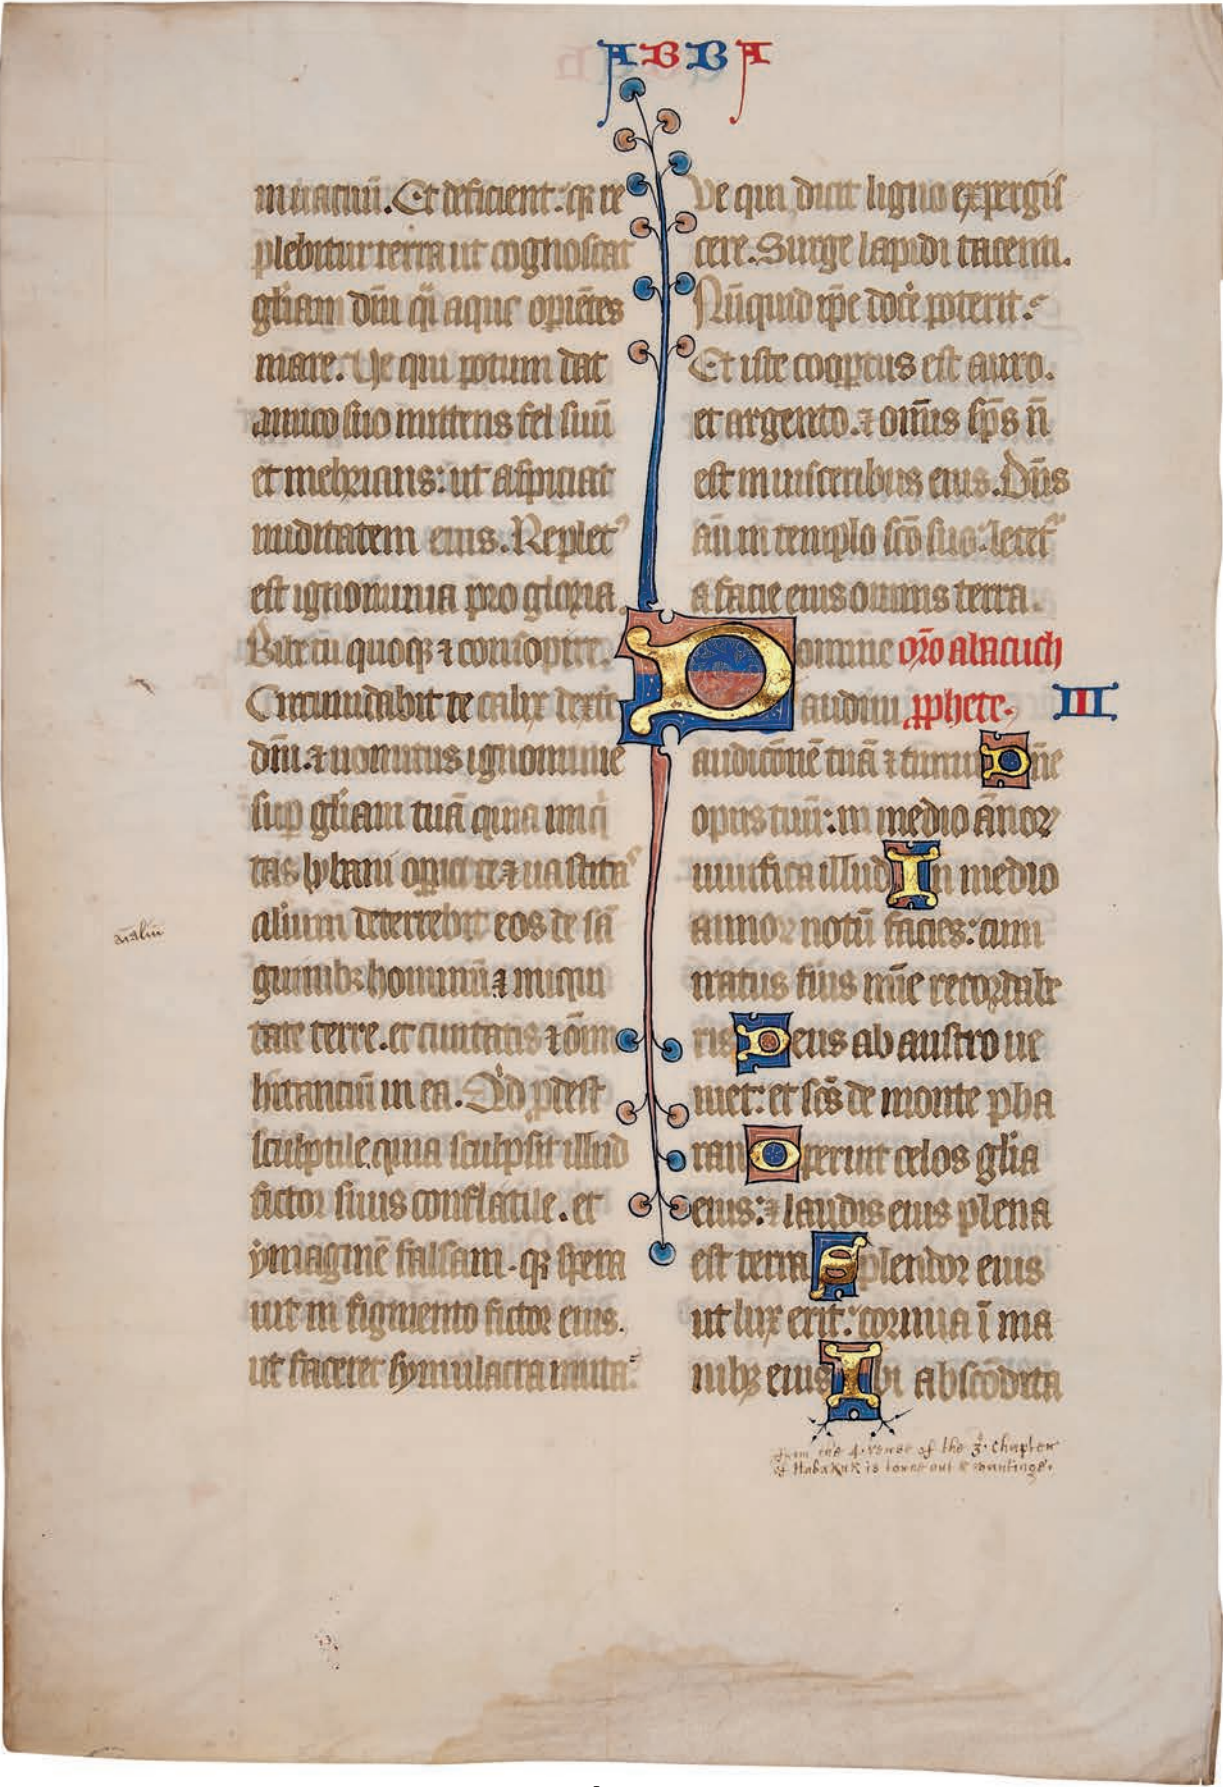 ABBA
in uacuū. Et deficient: qr re
plebitur terra ut cognoscat
gliam dn̄i q̄i aque opiētes
mare. Ue qui potum dat
amico suo mittens fel suū
et inebrians: ut aspiciat
nuditatem eius. Replet⁹
est ignominia pro gloria.
Bibe tu quoqꝫ ⁊ consopire.
Circumdabit te calix dexte
dn̄i. ⁊ uomitus ignominie
sup gliam tuā quia iniq̄
tas lybani opiet te ⁊ uastita⁹
alium deterrebit eos de sā
guinibꝫ hominū ⁊ iniqui
tate terre. et ciuitatis ⁊ oīm
hitanciū in ea. Qd pdest
sculptile. quia sculpsit illud
fictor suus conflatile. et
ymaginē falsam. qr spera
uit in figmento fictor eius.
ut faceret symulacra muta.
Ve qui dicit ligno expergis
cere. Surge lapidi tacenti.
Nūquid ip̄e docē poterit.
Et iste coop̄tus est auro.
et argento. ⁊ om̄is sp̄s n̄
est in uisceribus eius. Dn̄s
aū in templo scō suo: letet̄
a facie eius omnis terra.
Domine or̄o abacuch
audiui ꝓphete. III
audicōnē tuā ⁊ timui Dn̄e
opus tuū: in medio ānoꝝ
uiuifica illud In medio
annoꝝ notū facies: cum
iratus fūis mīe recordabe
ris Deus ab austro ue
niet: et scs̄ de monte pha
ran Operuit celos glia
eius: ⁊ laudis eius plena
est terra Splendor eius
ut lux erit: cornua ī ma
nibꝫ eius Ibi abscōdita
from the 4. verse of the 3. Chapter
of Habakuk is torne out & wantinge.